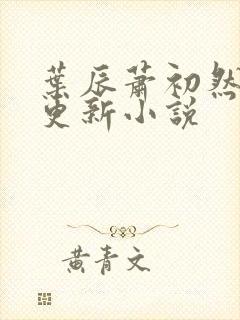 葉辰蕭初然
更新小說
黃青文